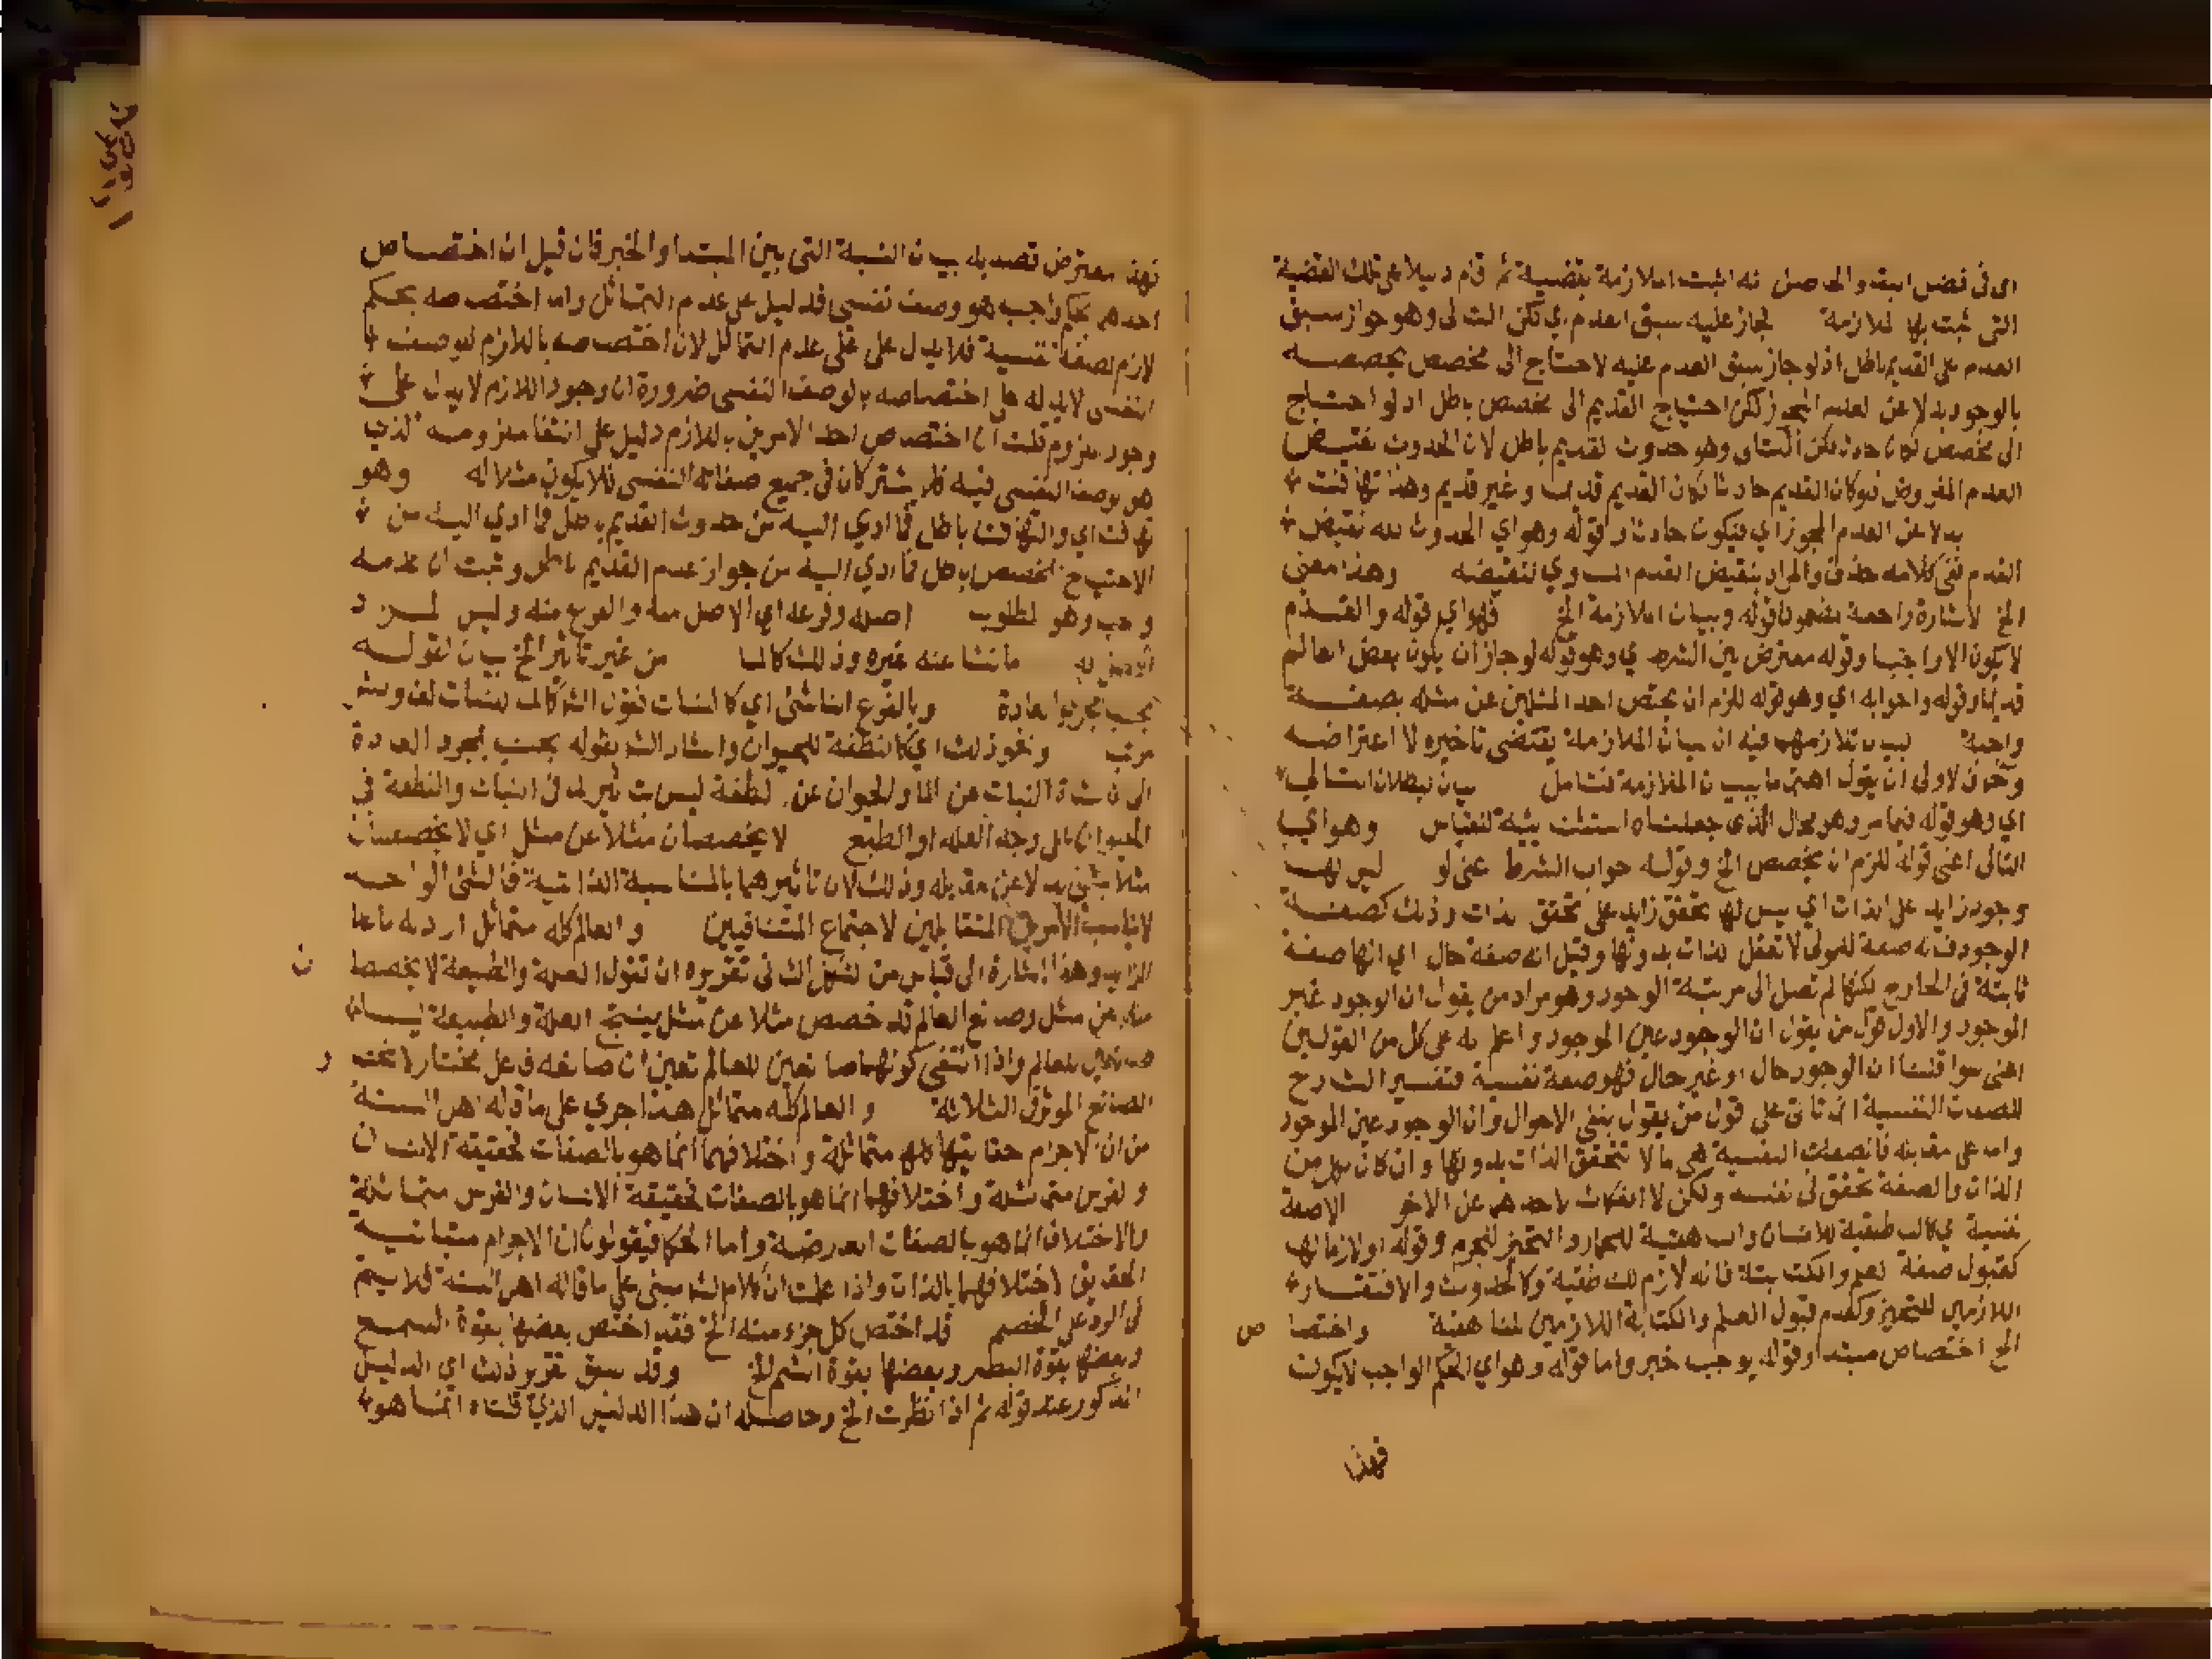 اى فى فصل ابقد والحاصل انه اثبت الملازمة بقضية ثم قام دليلا على تلك القضية
التى ثبت بها الملازمة لجاز عليه سبق العدم اي لكن التالى وهو جواز سبق
العدم على القديم باطل اذ لو جاز سبق العدم عليه لاحتاج الى مخصص يخصصه
بالوجود بدلا عن العدم المجوز لكن احتياج القديم الى مخصص باطل اذ لو احتاج
الى مخصص لكان حادثا لكن التالى وهو حدوث القديم باطل لان الحدوث نقيض
العدم المفروض فلو كان القديم حادثا لكان القديم قديما وغير قديم وهذا تهافت
بدلا عن العدم المجوز اي فيكون حادثا وقوله وهو اي الحدوث لله نقيض
القدم ففى كلامه حذف والمراد بنقيض القدم المساوي لنقيضه وهذا معنى
الخ الاشارة راجعة لمضمون قوله وبيان الملازمة الخ فهو اي قوله والقدم
لا يكون الا واجبا وقوله معترض بين الشرط اي وهو قوله لو جاز ان يكون بعض العالم
قديما وقوله وجوابه اي وهو قوله للزم ان يختص احد المثلين عن مثله بصفة
واجبة لبيان تلازمهما فيه ان بيان الملازمة يقتضى تاخيره لا اعتراضه
وكون الاولى ان يقول اهتماما ببيان الملازمة فتامل بيان لبطلان التالي
اي وهو قوله فيما مر وهو محال الذى جعلناه استثنائية لقياس وهو اي
التالى اعنى قوله للزم ان يخصص الخ وقوله جواب الشرط اعنى لو ليس لها
وجود زايد على الذات اي ليس لها تحقق زايد على تحقق الذات وذلك كصفة
الوجود فانه صفة للمولى لا تعقل الذات بدونها وقيل انه صفة حال اي انها صفة
ثابتة فى الخارج لكنها لم تصل الى مرتبة الوجود وهو مراد من يقول ان الوجود غير
الموجود والاول قول من يقول ان الوجود عين الموجود واعلم انه على كل من القولين
اعنى سوا قلنا ان الوجود حال او غير حال فهو صفة نفسية فتفسير الشارح
للصفات النفسية انما ياتى على قول من يقول بنفى الاحوال وان الوجود عين الموجود
واما على مقابله فالصفات النفسية هى ما لا تتحقق الذات بدونها وان كان لكل من
الذات والصفة تحقق فى نفسه ولكن لا انفكاك لاحدهما عن الاخر الا صفة
نفسية اي كالناطقية للانسان والناهقية للحمار والتحيز للجرم وقوله او لازما لها
كقبول صفة العلم والكتابة فانه لازم للناطقية وكالحدوث والافتقار
اللازمين للتحيز وكعدم قبول العلم والكتابة اللازمين للناهقية واختصا ص
الخ اختصاص مبتدا وقوله يوجب خبر واما قوله وهو اي الحكم الواجب لا يكون
فهذا
فهذا معترض قصد به بيان النسبة التى بين المبتدا والخبر فان قيل ان اختصاص
احدهما بحكم واجب هو وصف نفسى قد ليل على عدم التماثل واما اختصاصه بحكم
لازم لصفة نفسية فلا يدل على على عدم التماثل لان اختصاصه باللازم للوصف
النفسى لا يدل على اختصاصه بالوصف النفسى ضرورة ان وجود اللازم لا يدل على
وجود ملزوم قلت ان اختصاص احد الامرين باللازم دليل على انتفا ملزومه الذي
هو الوصف النفسى فيه فلم يشتركان فى جميع صفاته النفسى فلا يكون مثلا له وهو
تهافت اي والتهافت باطل فما ادي اليه من حدوث القديم باطل فما ادي اليه من
الاحتياج لمخصص باطل فما ادي اليه من جواز عدم القديم باطل وثبت ان قدمه
واجب وهو المطلوب اصله وفرعه اي الاصل منه والفرع منه وليس المراد
ما نشا عنه غيره وذلك كالما من غير تاثير الخ بيان لقوله
بحسب مجرد العادة وبالفرع الناشئ اي كالنبات فقول الش كالما لنبات لف ونشر
مرتب ونحو ذلك اي كالنطفة للحيوان واشار الش بقوله بحسب مجرد العادة
الى ان نشاة النبات عن الما والحيوان عن النطفة ليس بتاثير لما فى النبات والنطفة فى
الحيوان على وجه العلة او الطبع لا يخصصان مثلا عن مثل اي لا يخصصان
مثلا بشئ بدلا عن مقابله وذلك لان تاثيرهما بالمناسبة الذاتية فالشئ الواحد
لا يناسب الامرين المتقابلين لاجتماع المتنافيين والعالم كله متماثل اراد به ما عدا
الزايد وهذا اشارة الى قياس من الشكل الثانى تقريره ان تقول العلة والطبيعة لا يخصصا ن
مثلا عن مثل وصانع العالم قد خصص مثلا عن مثل ينتج العلة والطبيعة ليسا
صانعين للعالم واذا انتفى كونهما صانعين للعالم تعين ان صانعه فاعل مختار لانحصا ر
الصانع الموثر فى الثلاثة والعالم كله متماثل هذا جري على ما قاله اهل السنة
من ان الاجرام حقايقها كلها متماثلة واختلافهما انما هو بالصفات فحقيقة الانسان
والفرس متماثلة واختلافهما انما هو بالصفات فحقيقة الانسان والفرس متماثلة
والاختلاف انما هو بالصفات العارضة واما الحكما فيقولون ان الاجرام متباينة
الحقايق واختلافهما بالذات واذا علمت ان كلام الش مبنى على ما قاله اهل السنة فلا يتم
فى الرد على الخصم قد اختص كل جزء منه الخ فقد اختص بعضها بقوة السمع
وبعضها بقوة البصر وبعضها بقوة الشم الخ وقد سبق تقرير ذلك اي الدليل
المذكور عند قوله ثم اذا نظرت الخ وحاصله ان هذا الدليل الذي قلناه انما هو